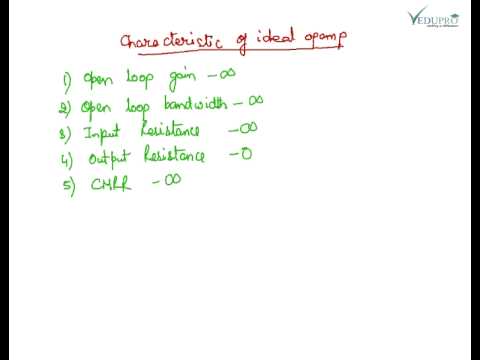 VEDUPRO
Characteristic of ideal opamp
1) Open loop gain - ∞
2) Open loop bandwidth - ∞
3) Input Resistance - ∞
4) Output Resistance - 0
5) CMRR - ∞